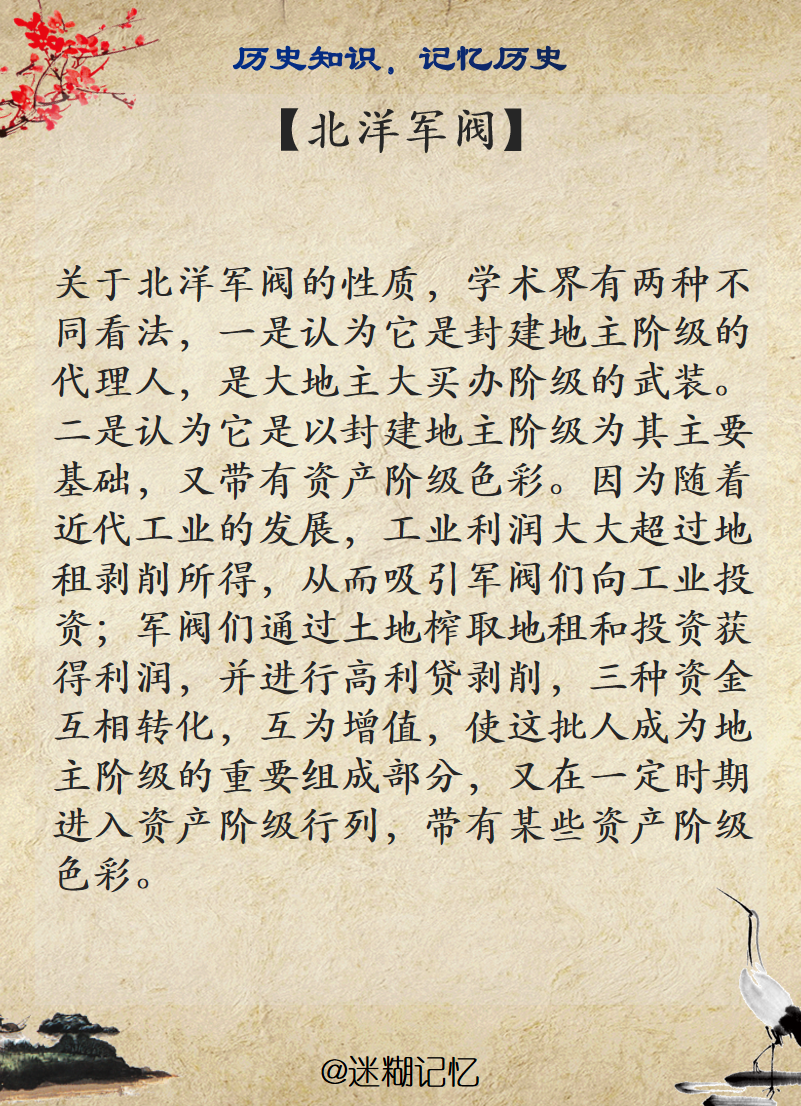 历史知识，记忆历史
【北洋军阀】
关于北洋军阀的性质，学术界有两种不
同看法，一是认为它是封建地主阶级的
代理人，是大地主大买办阶级的武装。
二是认为它是以封建地主阶级为其主要
基础，又带有资产阶级色彩。因为随着
近代工业的发展，工业利润大大超过地
租剥削所得，从而吸引军阀们向工业投
资；军阀们通过土地榨取地租和投资获
得利润，并进行高利贷剥削，三种资金
互相转化，互为增值，使这批人成为地
主阶级的重要组成部分，又在一定时期
进入资产阶级行列，带有某些资产阶级
色彩。
@迷糊记忆